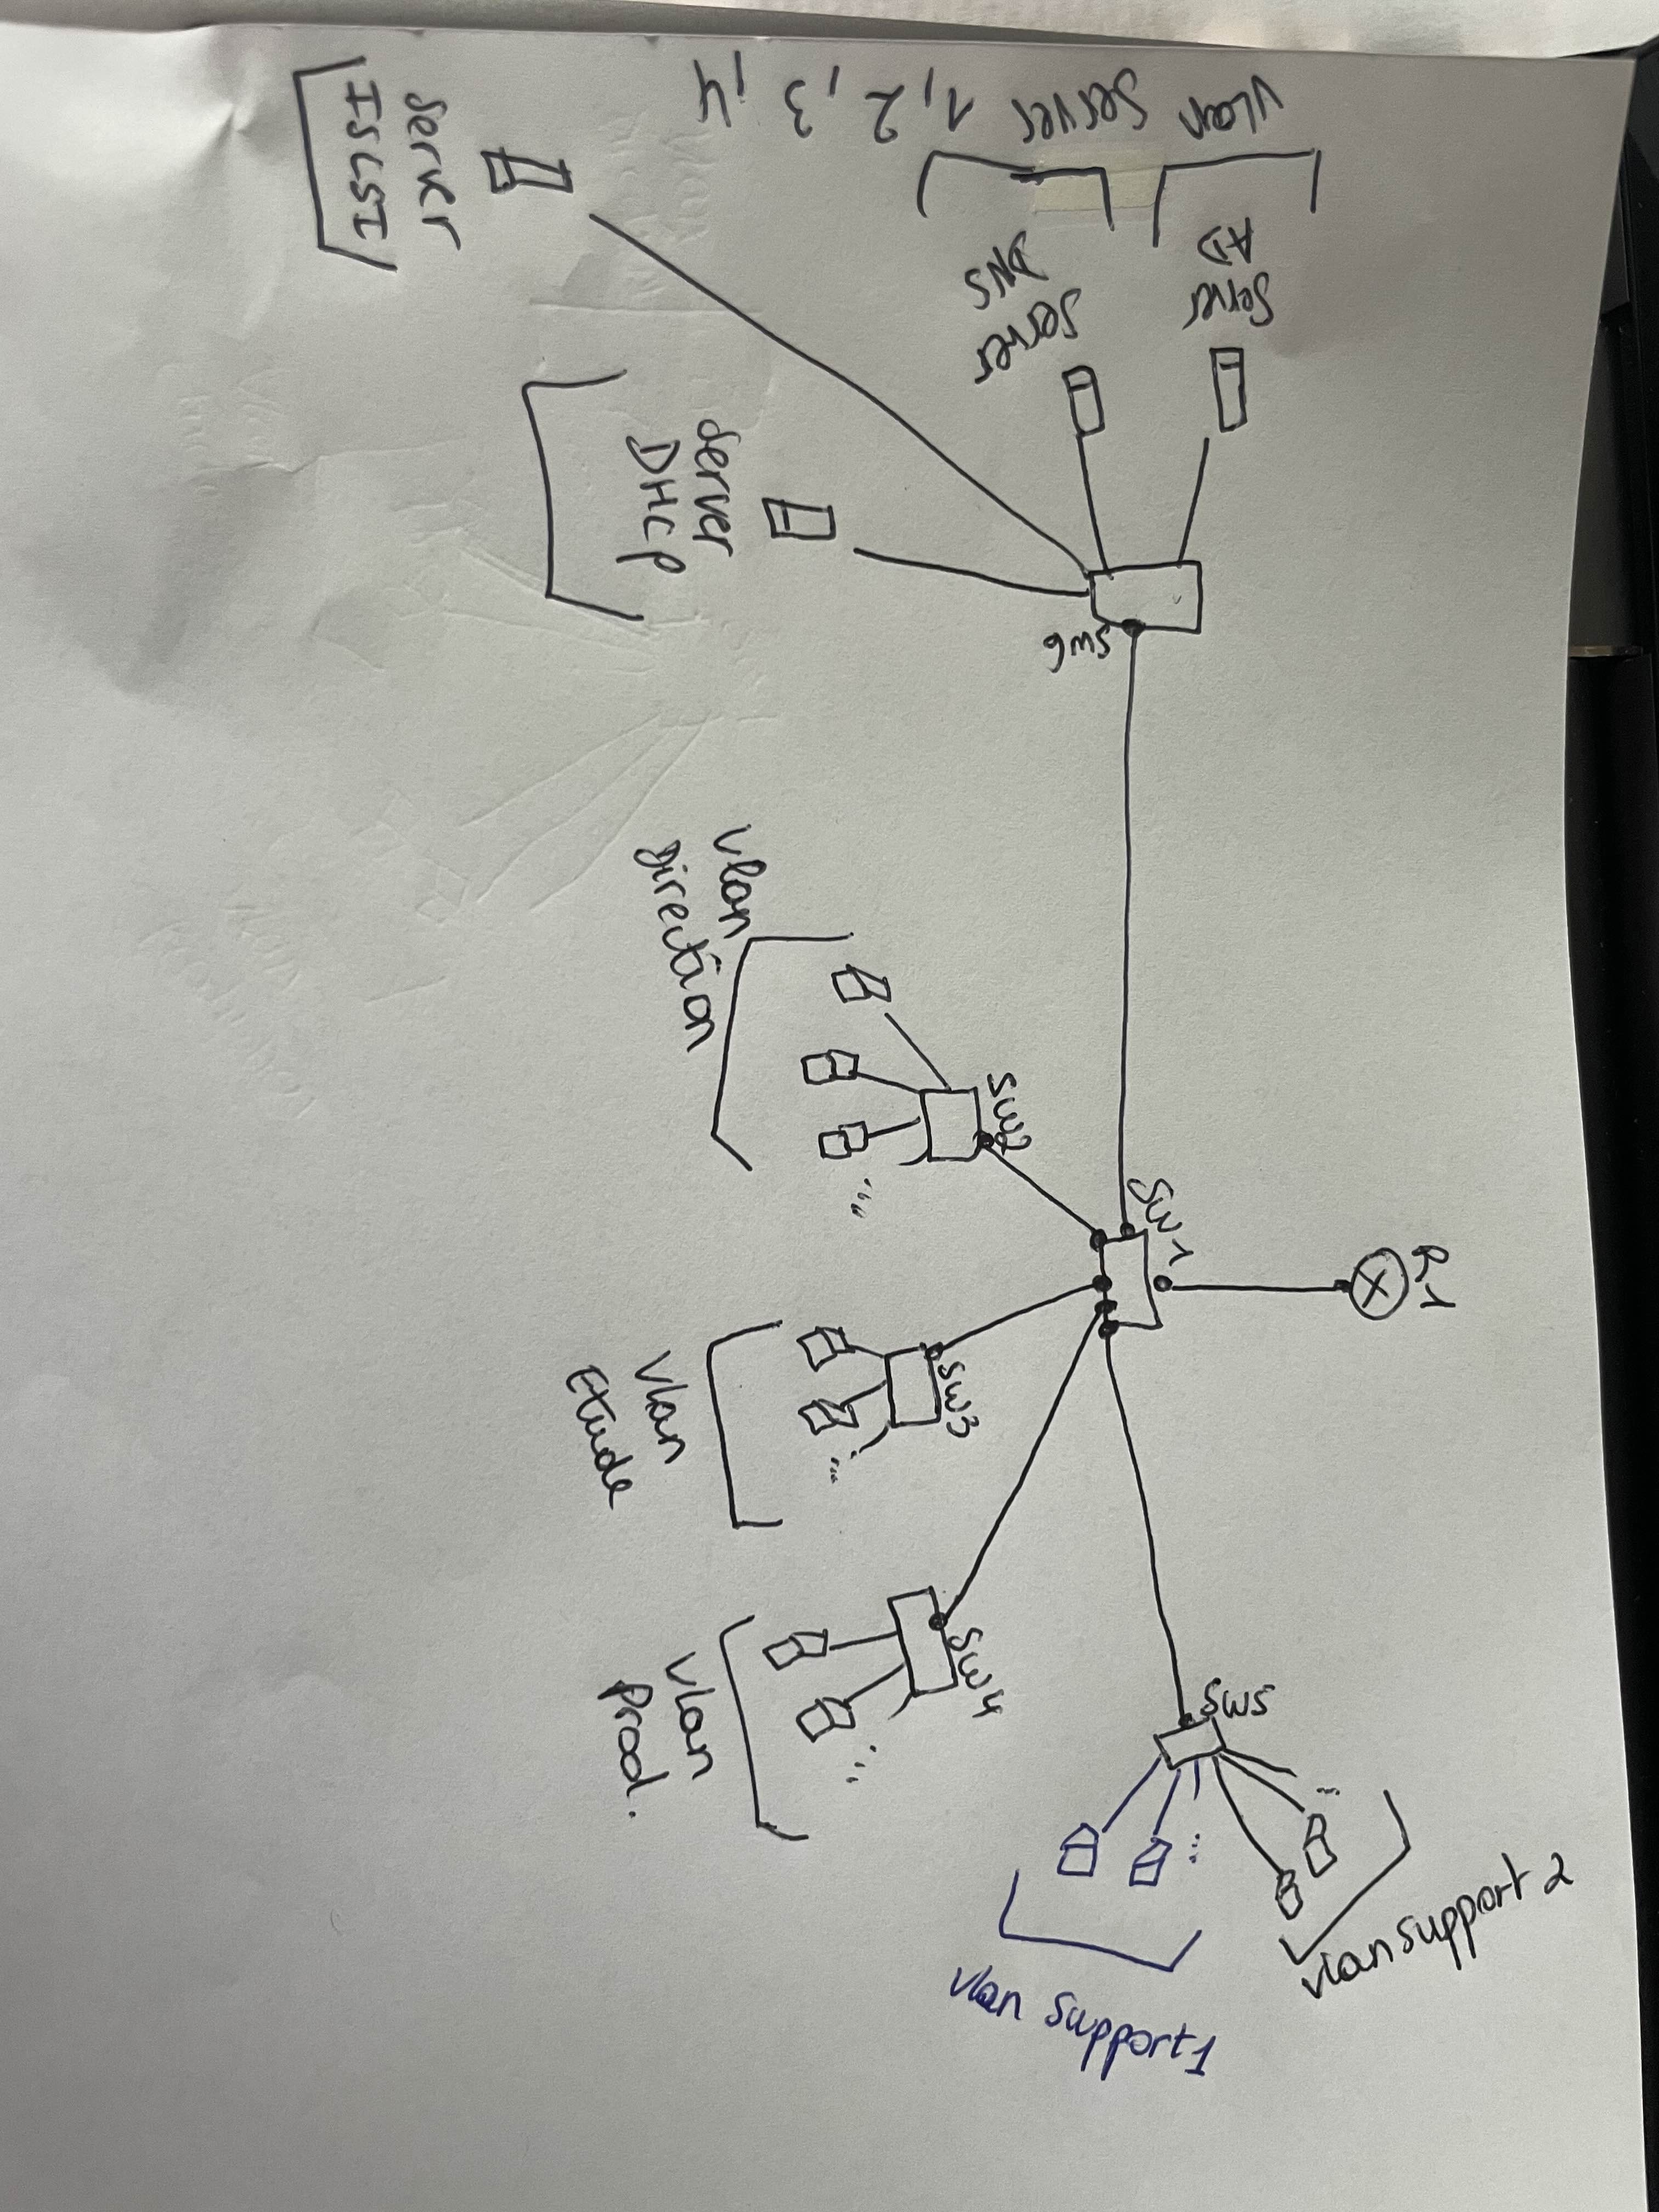 Vlan Server 1, 2, 3, 4
Server
ISCSI
Server
DNS
Server
AD
Server
DHCP
SW6
Vlan
Direction
SW2
SW1
R1
Vlan
Etude
SW3
Vlan
Prod.
SW4
SW5
Vlan support1
Vlan support 2